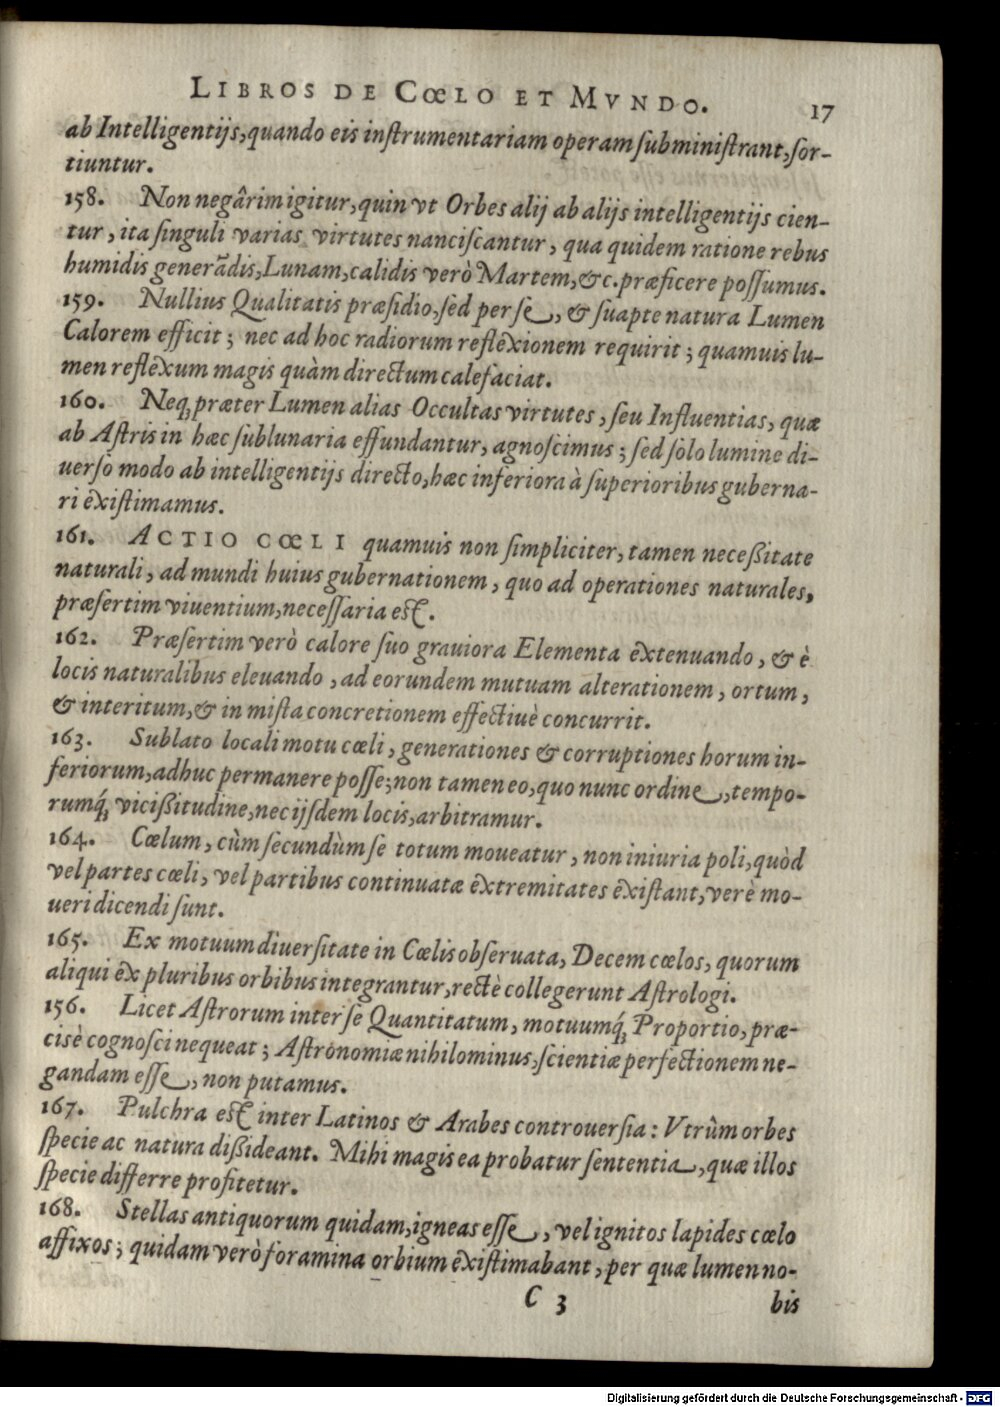 LIBROS DE CŒLO ET MVNDO. 17
ab Intelligentijs, quando eis instrumentariam operam subministrant, sor-
tiuntur.
158. Non negârim igitur, quin vt Orbes alij ab alijs intelligentijs cien-
tur, ita singuli varias virtutes nanciscantur, qua quidem ratione rebus
humidis generādis, Lunam, calidis verò Martem, &c. præficere possumus.
159. Nullius Qualitatis præsidio, sed per se, & suapte natura Lumen
Calorem efficit; nec ad hoc radiorum reflexionem requirit; quamuis lu-
men reflexum magis quàm directum calefaciat.
160. Neq; præter Lumen alias Occultas virtutes, seu Influentias, quæ
ab Astris in hæc sublunaria effundantur, agnoscimus; sed solo lumine di-
uerso modo ab intelligentijs directo, hæc inferiora à superioribus guberna-
ri existimamus.
161. ACTIO CŒLI quamuis non simpliciter, tamen necessitate
naturali, ad mundi huius gubernationem, quo ad operationes naturales,
præsertim viuentium, necessaria est.
162. Præsertim verò calore suo grauiora Elementa extenuando, & è
locis naturalibus eleuando, ad eorundem mutuam alterationem, ortum,
& interitum, & in mista concretionem effectiuè concurrit.
163. Sublato locali motu cœli, generationes & corruptiones horum in-
feriorum, adhuc permanere posse; non tamen eo, quo nunc ordine, tempo-
rumq́; vicissitudine, nec ijsdem locis, arbitramur.
164. Cœlum, cùm secundùm se totum moueatur, non iniuria poli, quòd
vel partes cœli, vel partibus continuatæ extremitates existant, verè mo-
ueri dicendi sunt.
165. Ex motuum diuersitate in Cœlis obseruata, Decem cœlos, quorum
aliqui ex pluribus orbibus integrantur, rectè collegerunt Astrologi.
156. Licet Astrorum inter se Quantitatum, motuumq́; Proportio, præ-
cisè cognosci nequeat; Astronomiæ nihilominus, scientiæ perfectionem ne-
gandam esse, non putamus.
167. Pulchra est inter Latinos & Arabes controuersia: Vtrûm orbes
specie ac natura dissideant. Mihi magis ea probatur sententia, quæ illos
specie differre profitetur.
168. Stellas antiquorum quidam, igneas esse, vel ignitos lapides cœlo
affixos; quidam verò foramina orbium existimabant, per quæ lumen no-
C 3 bis
Digitalisierung gefördert durch die Deutsche Forschungsgemeinschaft - DFG